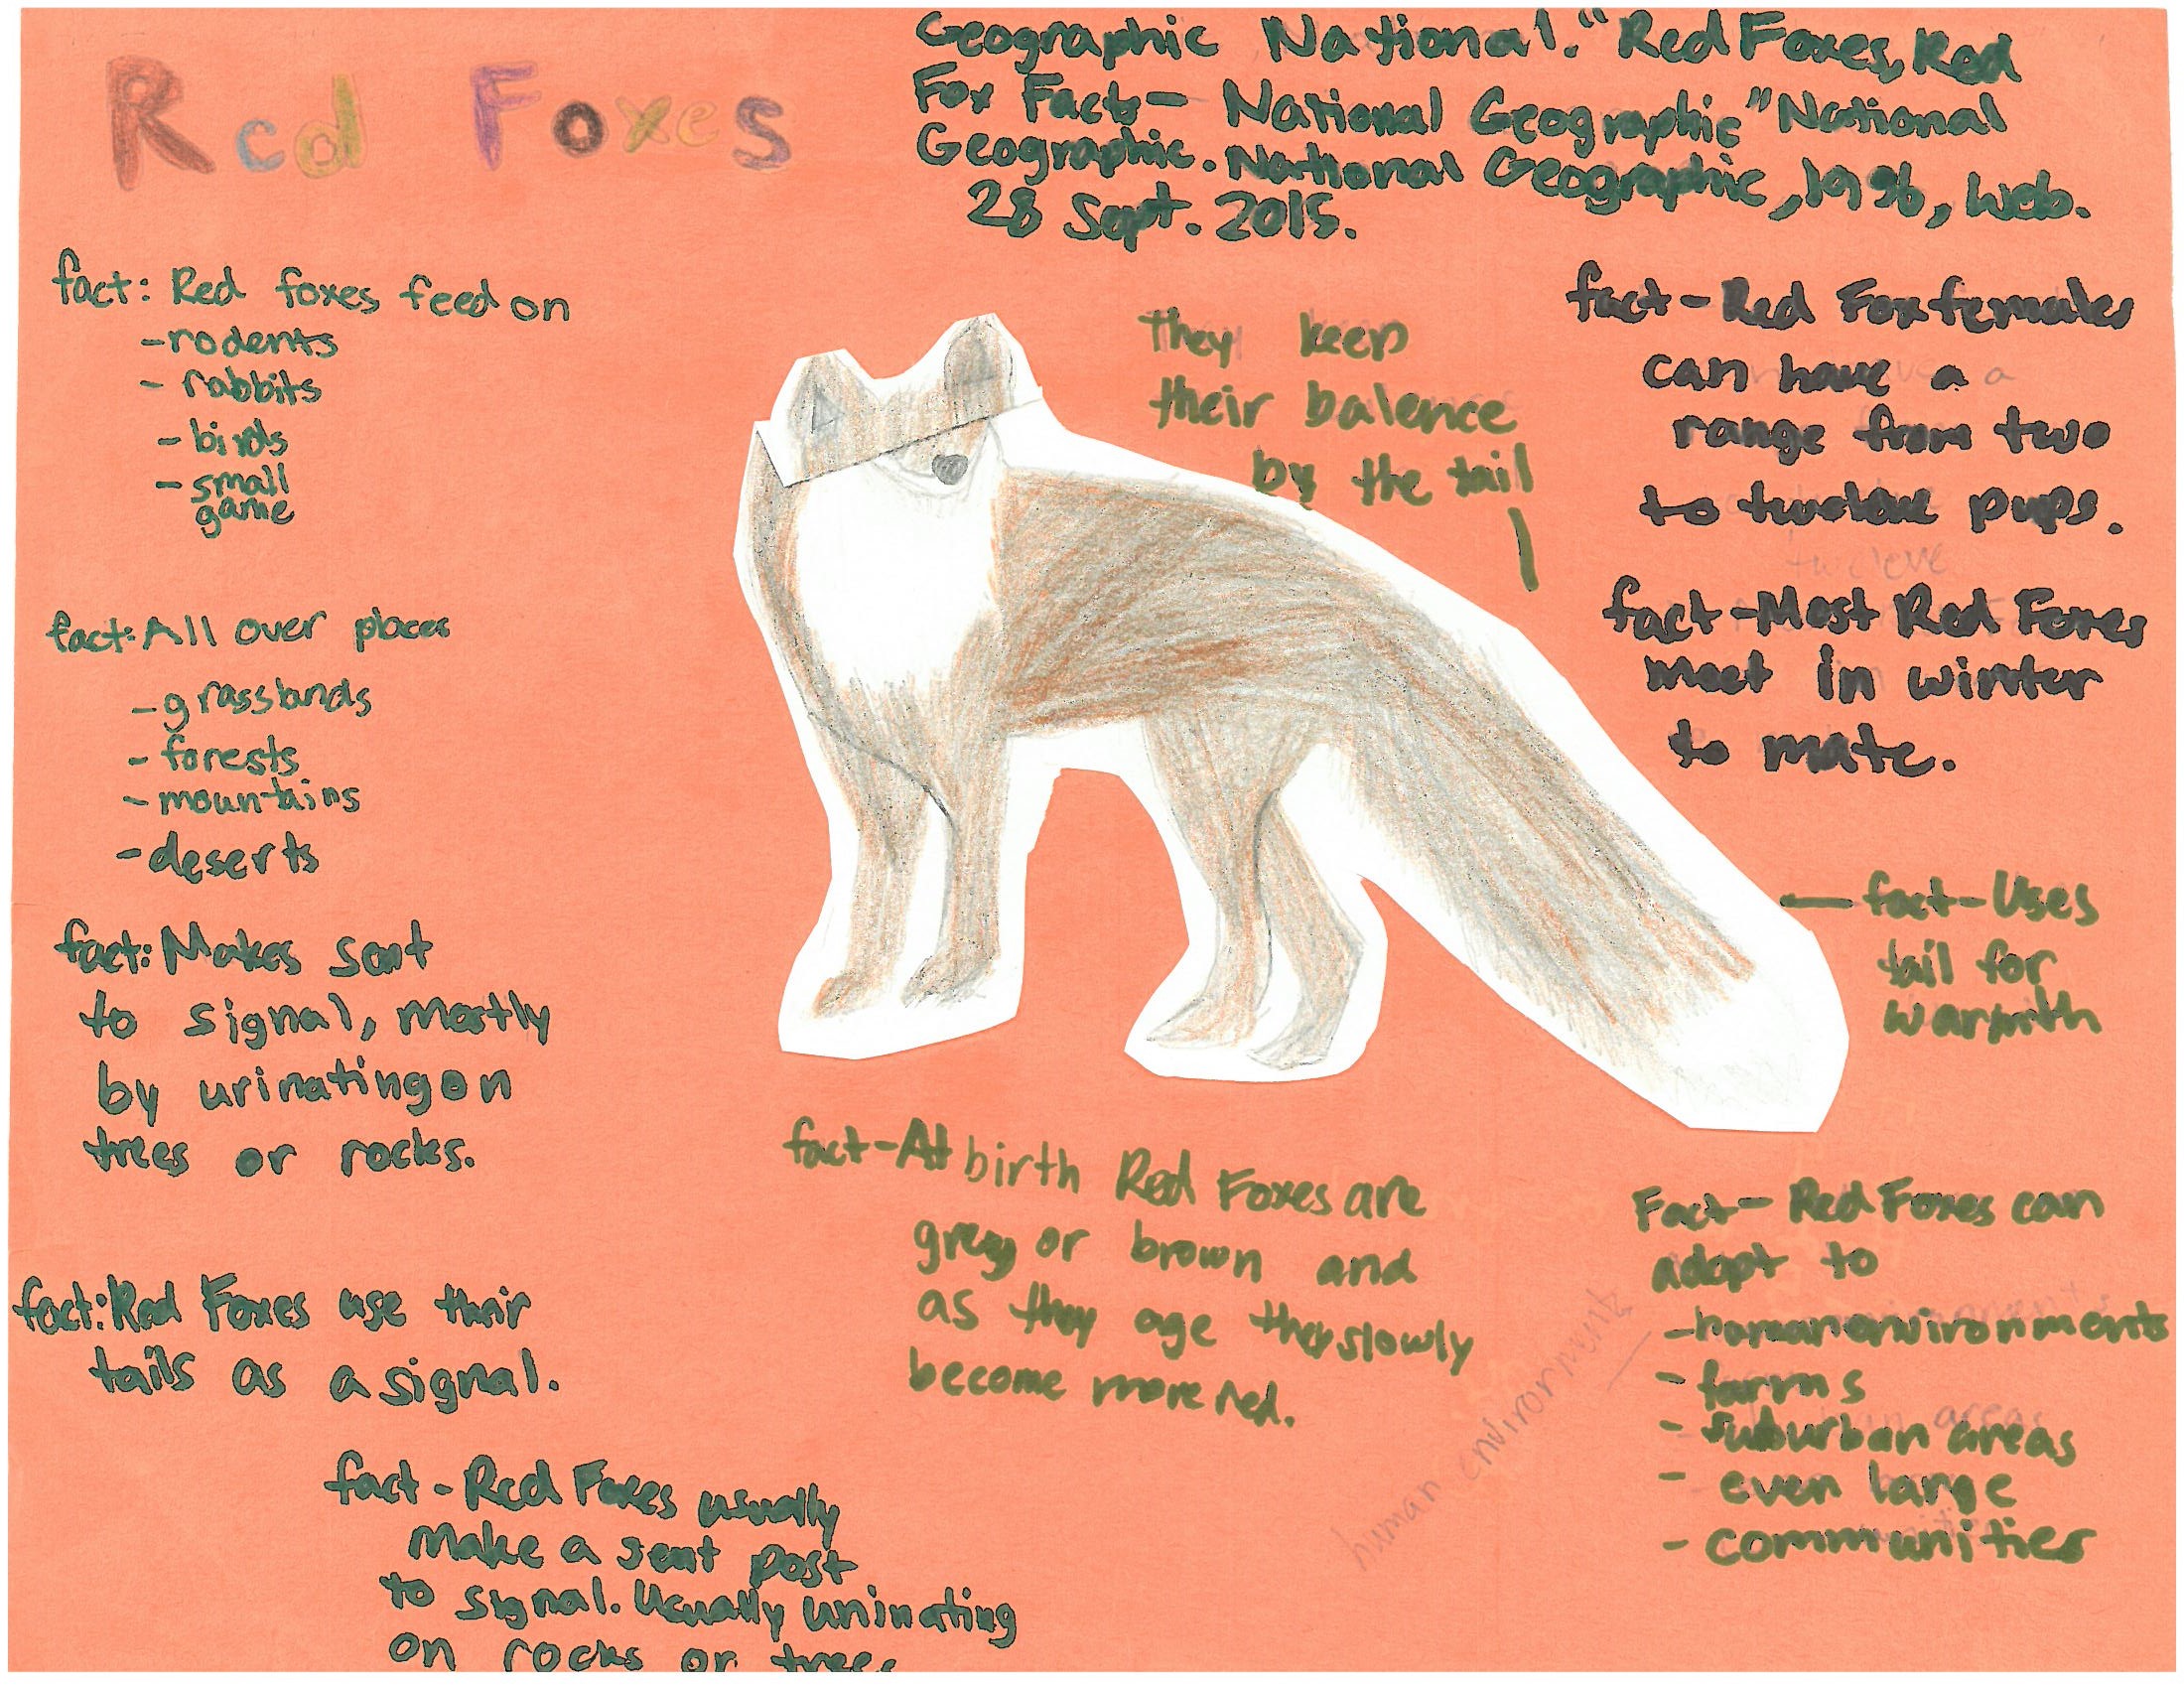 Red Foxes
Geographic National. "Red Foxes, Red
Fox Facts - National Geographic" National
Geographic. National Geographic, 1996, Web.
28 Sept. 2015.
fact: Red foxes feed on
- rodents
- rabbits
- birds
- small
game
fact: All over places
- grasslands
- forests
- mountains
- deserts
fact: Makes sent
to signal, mostly
by urinating on
trees or rocks.
fact: Red Foxes use their
tails as a signal.
fact - Red Foxes usually
make a sent post
to signal. Usually urinating
on rocks or trees
they keep
their balence
by the tail
fact - At birth Red Foxes are
grey or brown and
as they age they slowly
become more red.
fact - Red Fox females
can have a
range from two
to twelove pups.
twcleve
fact - Most Red Foxes
meet in winter
to mate.
fact - Uses
tail for
warmth
Fact - Red Foxes can
adopt to
- human environments
- farms
- suburban areas
- even large
- communities
human environments